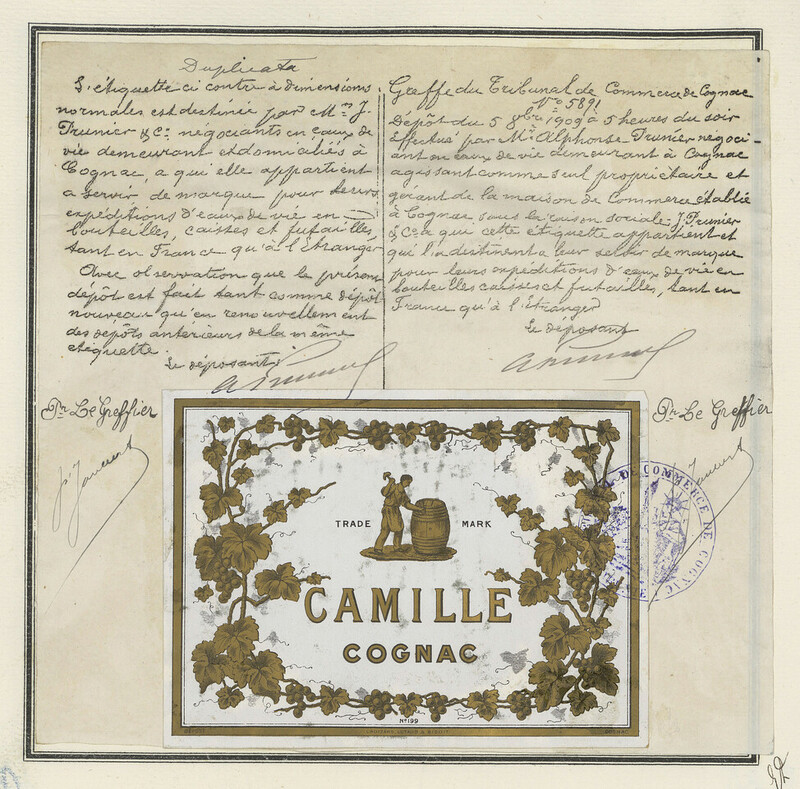 Duplicata
L'étiquette ci contre à dimensions
normales est destinée par Mrs J.
Prunier & Co. négociants en eaux de
vie demeurant et domiciliés à
Cognac, a qui elle appartient
a servir de marque pour leurs
expéditions d'eaux de vie en
bouteilles, caisses et futailles
tant en France qu'à l'Etranger
Avec observation que le présent
dépôt est fait tant comme dépôt
nouveau qu'en renouvellement
des dépôts antérieurs de la même
etiquette.
Le déposant
Greffe du Tribunal de Commerce de Cognac
No 5891
Dépôt du 5 1909 à 5 heures du soir
Effectué par Mr Alphonse Prunier négoci-
ant en eaux de vie demeurant à Cognac
agissant comme seul propriétaire et
gérant de la maison de Commerce établie
à Cognac sous la raison sociale J. Prunier
& Co a qui cette étiquette appartient et
qui l'a destinent a leur servir de marque
pour leurs expéditions d'eaux de vie en
bouteilles caisses et futailles, tant en
France qu'à l'Etranger
Le déposant
Pr Le Greffier
Pr Le Greffier
DE COMMERCE DE COGNAC
TRADE MARK
CAMILLE
COGNAC
No 199